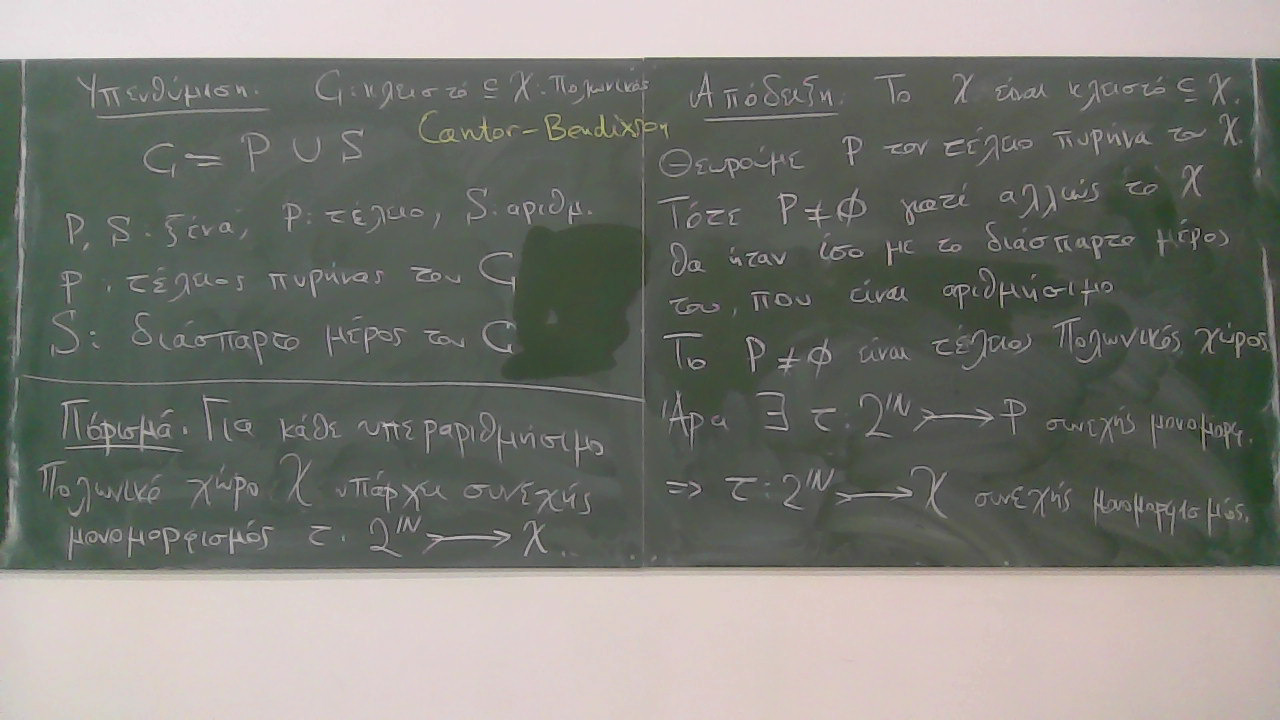 Υπενθύμιση. C: κλειστό ⊆ X: Πολωνικός
Cantor-Bendixson
C = P ∪ S
P, S: ξένα, P: τέλειο, S: αριθμ.
P: τέλειος πυρήνας του C
S: διάσπαρτο μέρος του C
Πόρισμα. Για κάθε υπεραριθμήσιμο
Πολωνικό χώρο X υπάρχει συνεχής
μονομορφισμός τ: 2^ℕ ↣ X.
Απόδειξη. Το X είναι κλειστό ⊆ X.
Θεωρούμε P τον τέλειο πυρήνα του X.
Τότε P ≠ ∅ γιατί αλλιώς το X
θα ήταν ίσο με το διάσπαρτο μέρος
του, που είναι αριθμήσιμο
Το P ≠ ∅ είναι τέλειος Πολωνικός χώρος
Άρα ∃ τ: 2^ℕ ↣ P συνεχής μονομορφ.
⇒ τ: 2^ℕ ↣ X συνεχής μονομορφισμός.